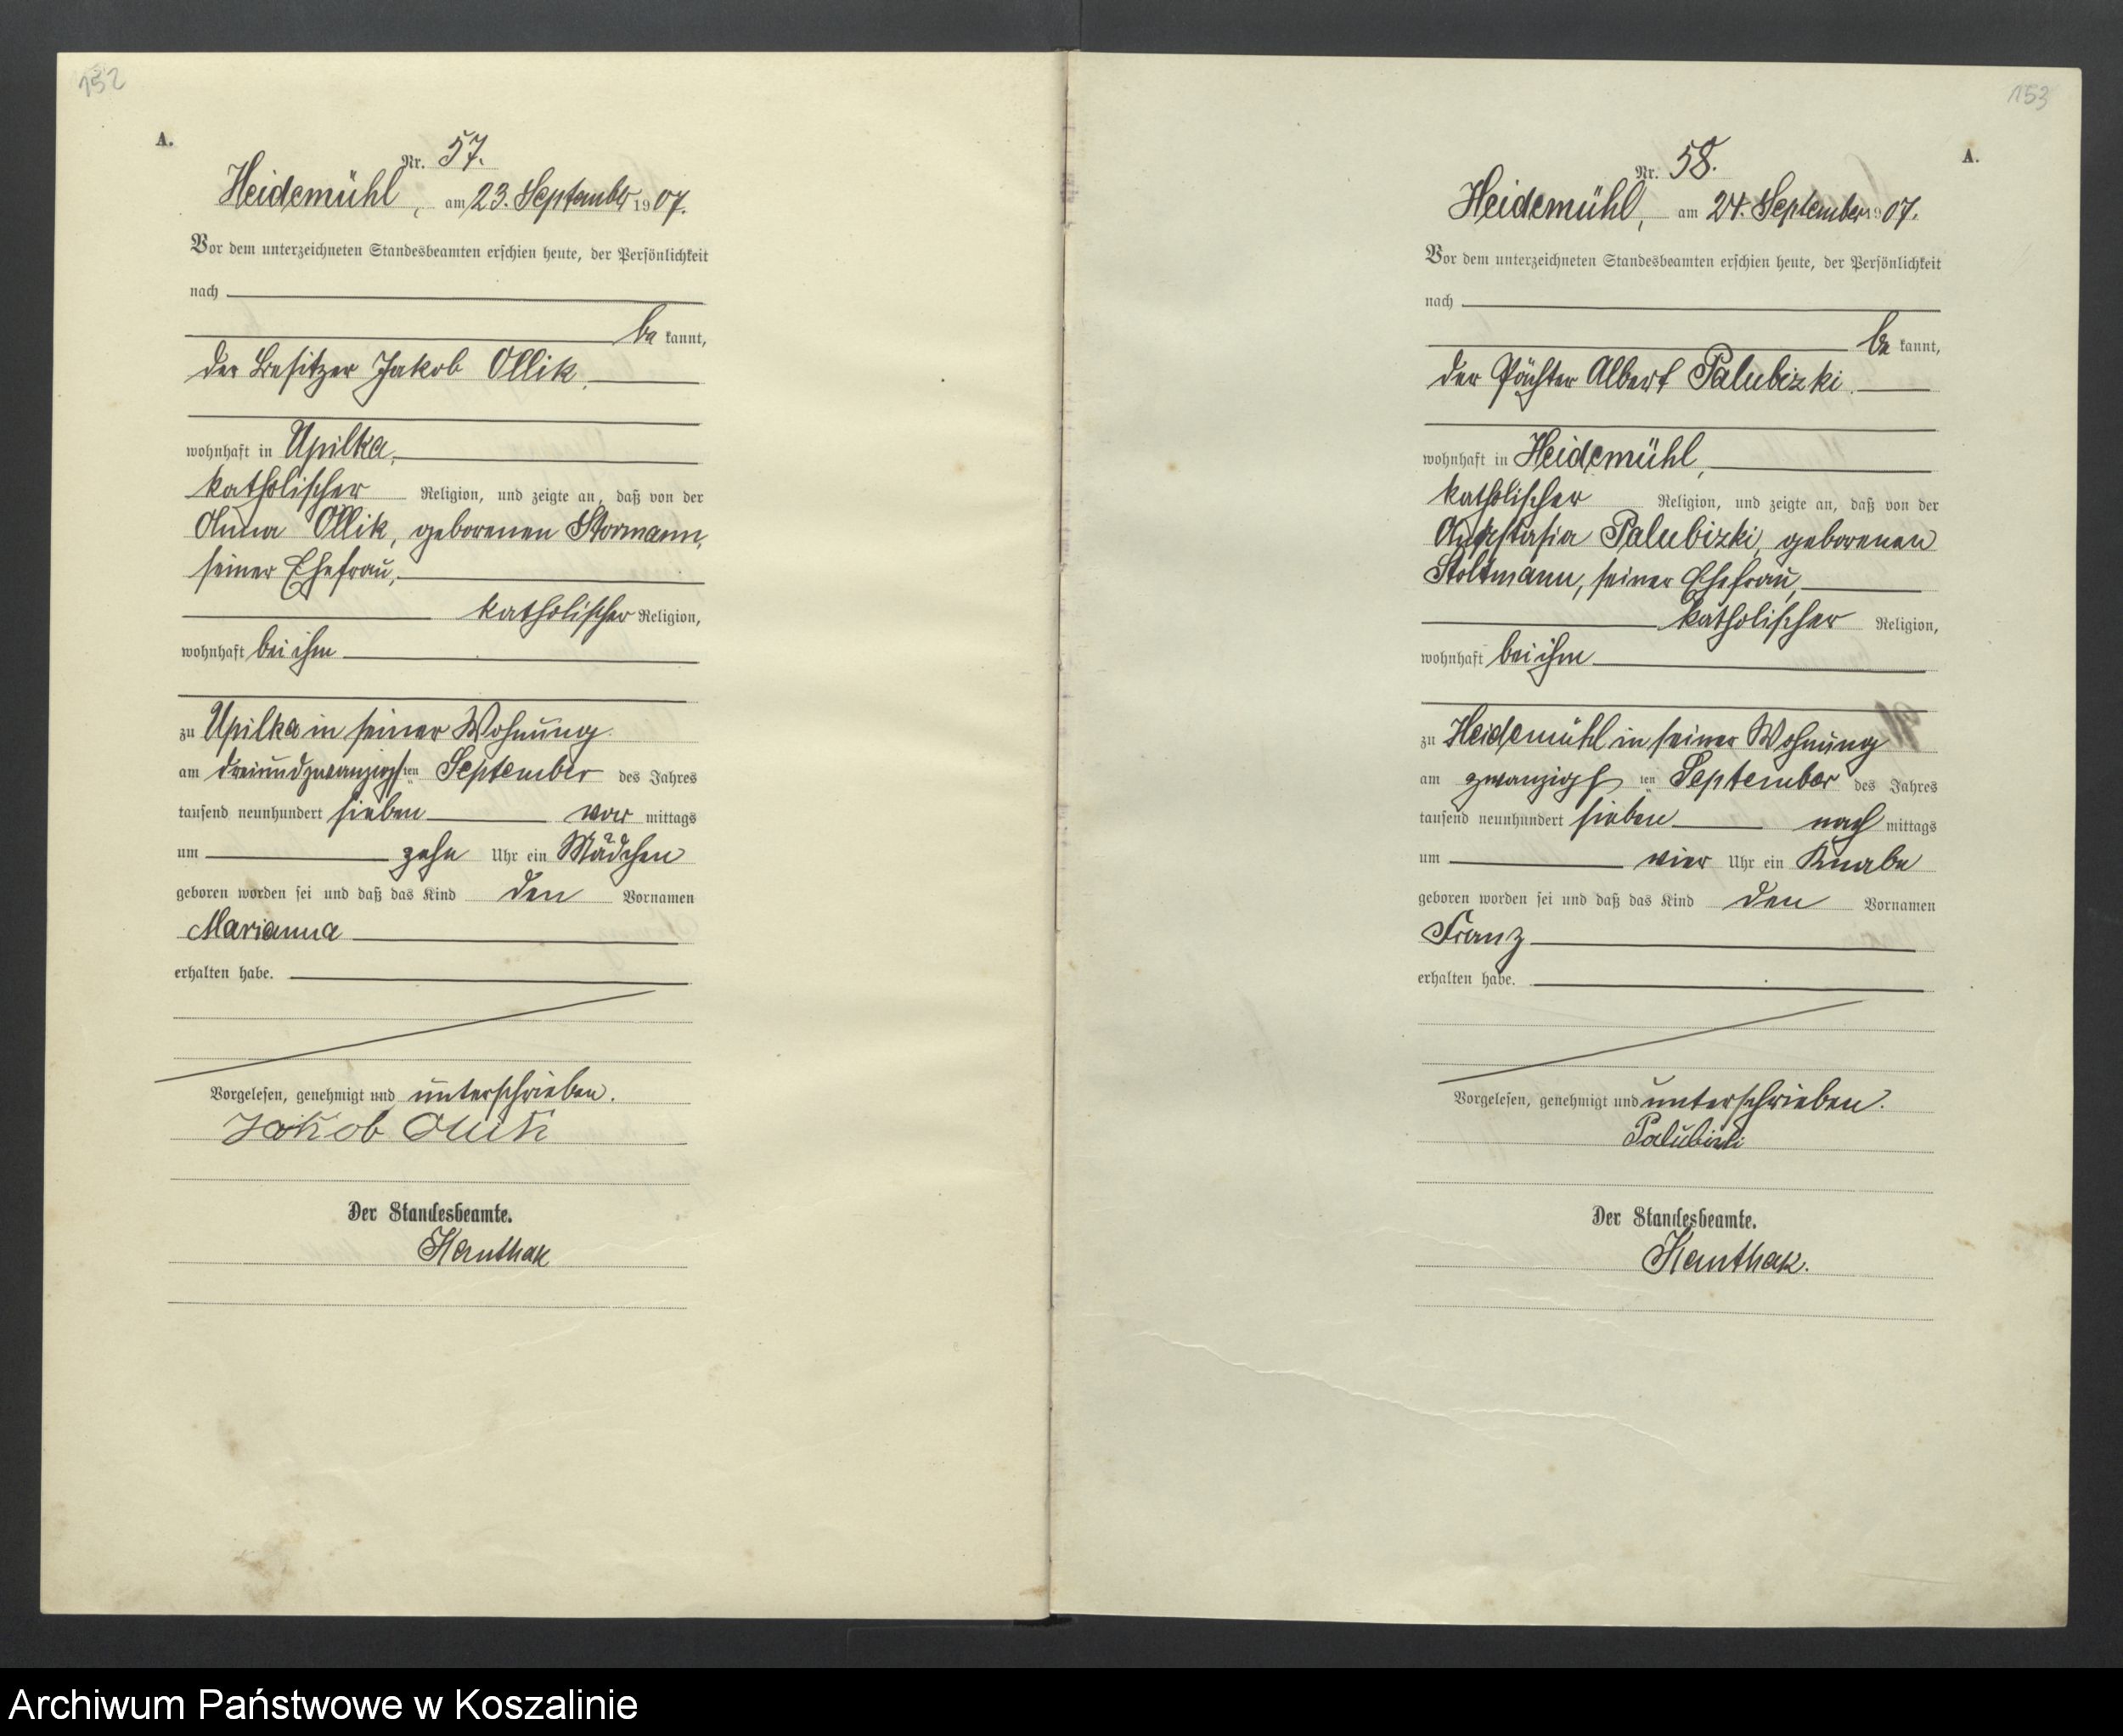 152
A.
Nr. 57.
Heidemühl, am 23. September 1907.
Vor dem unterzeichneten Standesbeamten erschien heute, der Persönlichkeit
nach
be kannt,
der Besitzer Jakob Ollik,
wohnhaft in Upilka,
katholischer Religion, und zeigte an, daß von der
Anna Ollik, geborenen Stormann,
seiner Ehefrau,
katholischer Religion,
wohnhaft bei ihm
zu Upilka in seiner Wohnung
am dreiundzwanzigsten September des Jahres
tausend neunhundert sieben vor mittags
um zehn Uhr ein Mädchen
geboren worden sei und daß das Kind den Vornamen
Marianna
erhalten habe.
Vorgelesen, genehmigt und unterschrieben.
Jakob Ollik
Der Standesbeamte.
Kanthak
153
A.
Nr. 58.
Heidemühl, am 24. September 1907.
Vor dem unterzeichneten Standesbeamten erschien heute, der Persönlichkeit
nach
be kannt,
der Pächter Albert Palubizki,
wohnhaft in Heidemühl,
katholischer Religion, und zeigte an, daß von der
Anastasia Palubizki, geborenen
Stoltmann, seiner Ehefrau,
katholischer Religion,
wohnhaft bei ihm
zu Heidemühl in seiner Wohnung
am zwanzigsten September des Jahres
tausend neunhundert sieben nach mittags
um vier Uhr ein Knabe
geboren worden sei und daß das Kind den Vornamen
Franz
erhalten habe.
Vorgelesen, genehmigt und unterschrieben.
Palubizki
Der Standesbeamte.
Kanthak.
Archiwum Państwowe w Koszalinie